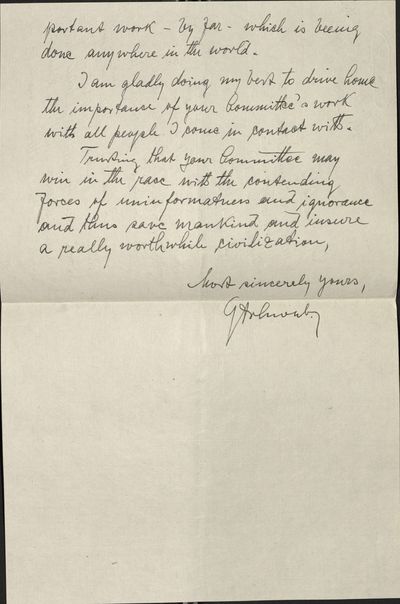 portant work - by far - which is beeing
done anywhere in the world.
I am gladly doing my best to drive home
the importance of your Committee's work
with all people I come in contact with.
Trusting that your Committee may
win in the race with the contending
forces of uninformatness and ignorance
and thus save mankind and insure
a really worthwhile civilization,
Most sincerely yours,